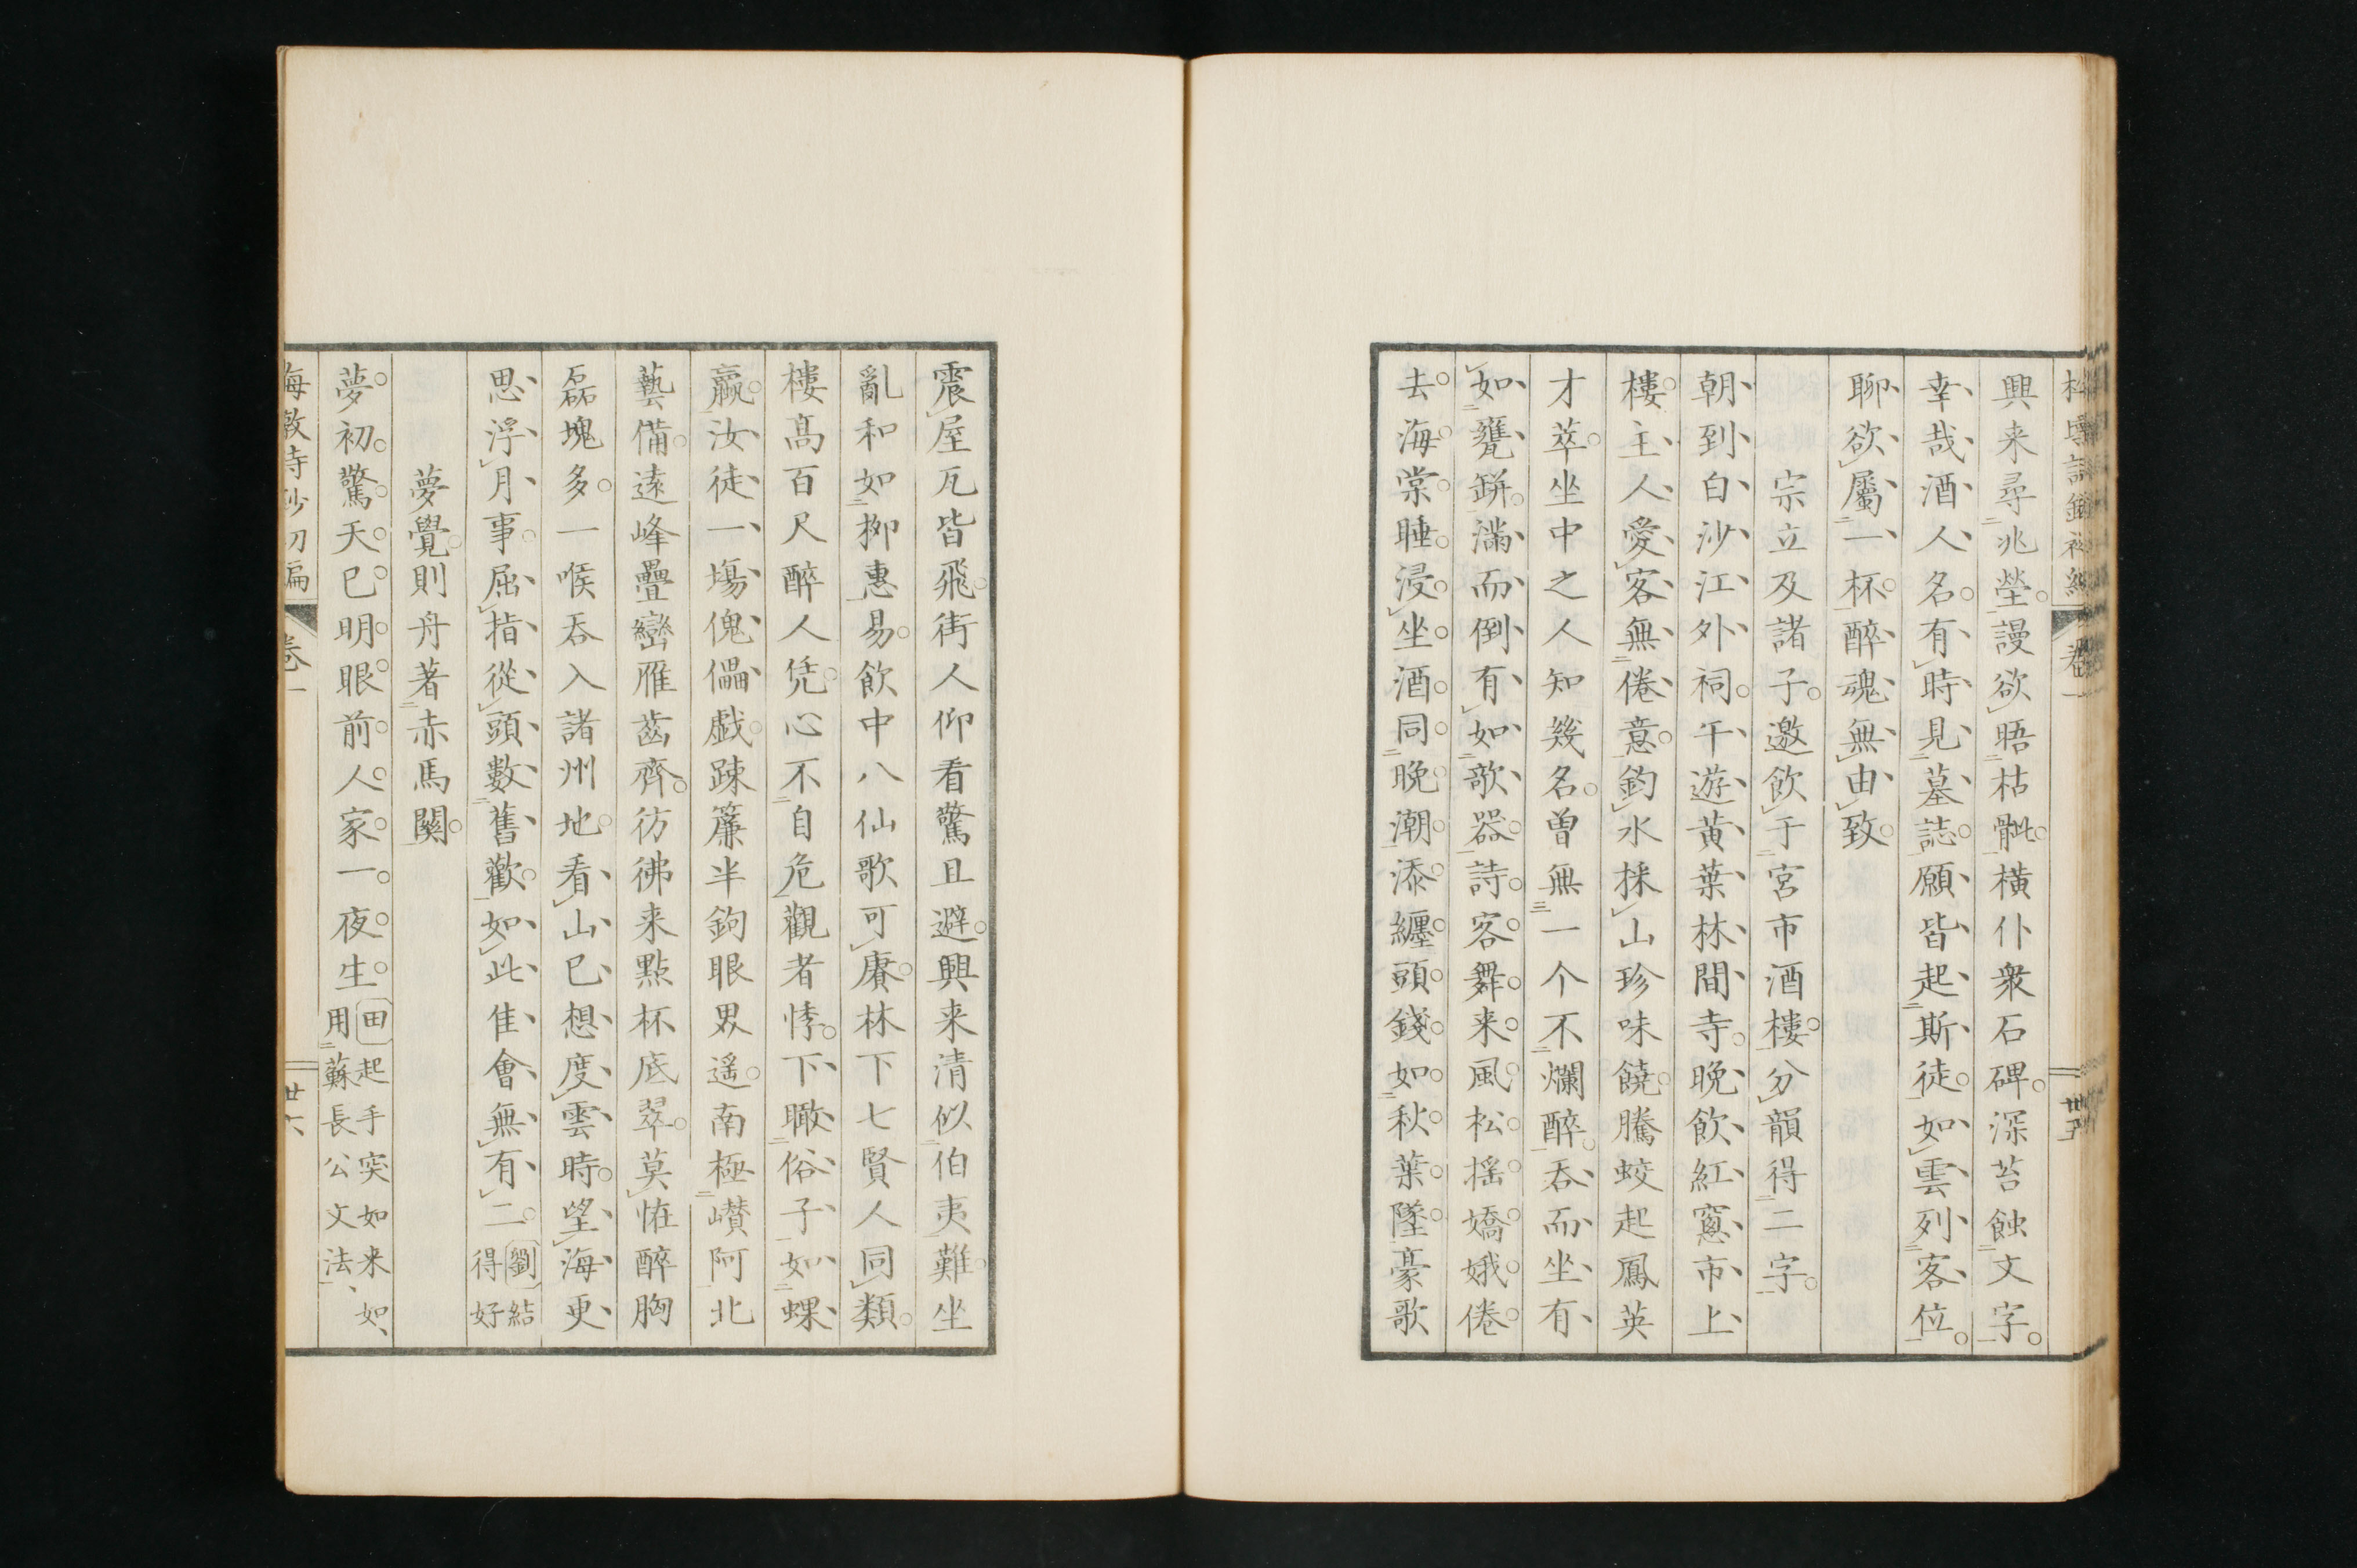 興来尋兆塋謾欲晤枯骴横仆衆石碑深苔蝕文字
幸哉酒人名有時見墓誌願皆起斯徒如雲列客位
聊欲屬一杯醉魂無由致
宗立及諸子邀飲于宮市酒樓分韻得二字
朝到白沙江外祠午遊黄葉林間寺晩飲紅窻市上
樓主人愛客無倦意鈞水採山珍味饒騰蛟起鳳英
才萃坐中之人知幾名曾無一个不爛醉吞而坐有
如甕缾滿而倒有如歌器詩客舞来風松揺嬌娥倦
去海棠睡浸坐酒同晩潮添纏頭錢如秋葉墜豪歌
震屋瓦皆飛街人仰看驚且避興来清似伯夷難坐
亂和如柳惠易飲中八仙歌可賡林下七賢人同類
樓髙百尺醉人凭心不自危觀者悸下瞰俗子如蜾
蠃汝徒一塲傀儡戯踈簾半鉤眼界遥南極巑阿北
藝備遠峰疊巒雁齒齊彷彿来點杯底翠莫恠醉胸
磊塊多一喉吞入諸州地看山已想度雲時望海更
思浮月事屈指從頭數舊歡如此佳會無有二 劉結
得好
夢覺則舟著赤馬關
夢初驚天已明眼前人家一夜生 田起手突如来如、
用蘇長公文法、
卷一
廿六